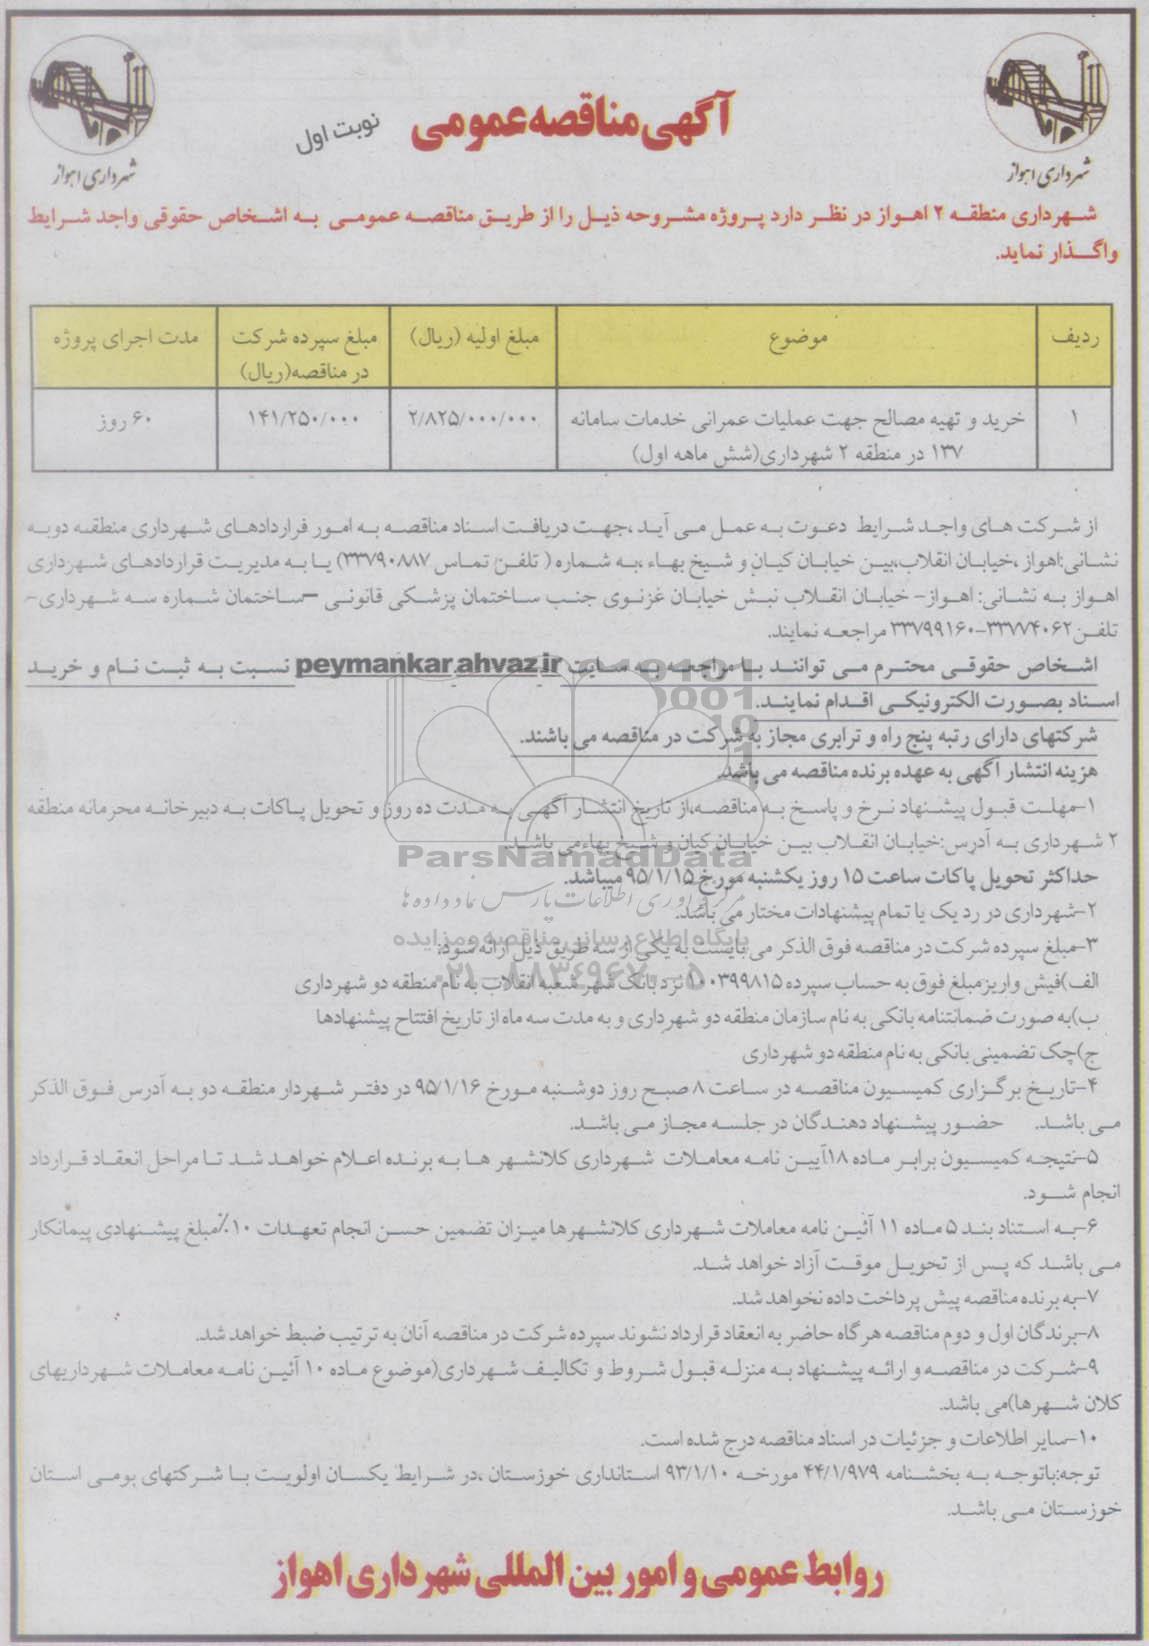 آگهی مناقصه عمومی
نوبت اول
شهرداری اهواز
شهرداری اهواز
شهرداری منطقه ۲ اهواز در نظر دارد پروژه مشروحه ذیل را از طریق مناقصه عمومی به اشخاص حقوقی واجد شرایط
واگذار نماید.
ردیف موضوع مبلغ اولیه (ریال) مبلغ سپرده شرکت مدت اجرای پروژه
در مناقصه(ریال)
۱ خرید و تهیه مصالح جهت عملیات عمرانی خدمات سامانه ۲/۸۲۵/۰۰۰/۰۰۰ ۱۴۱/۲۵۰/۰۰۰ ۶۰ روز
۱۳۷ در منطقه ۲ شهرداری(شش ماهه اول)
از شرکت های واجد شرایط دعوت به عمل می آید ،جهت دریافت اسناد مناقصه به امور قراردادهای شهرداری منطقه دوبه
نشانی:اهواز ،خیابان انقلاب،بین خیابان کیان و شیخ بهاء ،به شماره ( تلفن تماس ۳۳۷۹۰۸۸۷) یا به مدیریت قراردادهای شهرداری
اهواز به نشانی: اهواز- خیابان انقلاب نبش خیابان غزنوی جنب ساختمان پزشکی قانونی –ساختمان شماره سه شهرداری-
تلفن۳۳۷۷۴۰۶۲-۳۳۷۹۹۱۶۰ مراجعه نمایند.
اشخاص حقوقی محترم می توانند با مراجعه به سایت peymankar.ahvaz.ir نسبت به ثبت نام و خرید
اسناد بصورت الکترونیکی اقدام نمایند.
شرکتهای دارای رتبه پنج راه و ترابری مجاز به شرکت در مناقصه می باشند.
هزینه انتشار آگهی به عهده برنده مناقصه می باشد.
۱-مهلت قبول پیشنهاد نرخ و پاسخ به مناقصه،از تاریخ انتشار آگهی به مدت ده روز و تحویل پاکات به دبیرخانه محرمانه منطقه
۲ شهرداری به آدرس:خیابان انقلاب بین خیابان کیان و شیخ بهاءمی باشد.
ParsNamadData
حداکثر تحویل پاکات ساعت ۱۵ روز یکشنبه مورخ ۹۵/۱/۱۵ میباشد.
مرکز فرآوری اطلاعات پارس نماد داده ها
۲-شهرداری در رد یک یا تمام پیشنهادات مختار می باشد.
پایگاه اطلاع رسانی مناقصه و مزایده
۳-مبلغ سپرده شرکت در مناقصه فوق الذکر می بایست به یکی از سه طریق ذیل ارائه شود:
۰۲۱-۸۸۳۴۹۶۷۰-۵
الف)فیش واریزمبلغ فوق به حساب سپرده ۱۰۰۳۹۹۸۱۵ نزد بانک شهر شعبه انقلاب به نام منطقه دو شهرداری
ب)به صورت ضمانتنامه بانکی به نام سازمان منطقه دو شهرداری و به مدت سه ماه از تاریخ افتتاح پیشنهادها
ج)چک تضمینی بانکی به نام منطقه دو شهرداری
۴-تاریخ برگزاری کمیسیون مناقصه در ساعت ۸ صبح روز دوشنبه مورخ ۹۵/۱/۱۶ در دفتر شهردار منطقه دو به آدرس فوق الذکر
می باشد. حضور پیشنهاد دهندگان در جلسه مجاز می باشد.
۵-نتیجه کمیسیون برابر ماده ۱۸آیین نامه معاملات شهرداری کلانشهر ها به برنده اعلام خواهد شد تا مراحل انعقاد قرارداد
انجام شود.
۶-به استناد بند ۵ ماده ۱۱ آئین نامه معاملات شهرداری کلانشهرها میزان تضمین حسن انجام تعهدات ۱۰٪مبلغ پیشنهادی پیمانکار
می باشد که پس از تحویل موقت آزاد خواهد شد.
۷-به برنده مناقصه پیش پرداخت داده نخواهد شد.
۸-برندگان اول و دوم مناقصه هرگاه حاضر به انعقاد قرارداد نشوند سپرده شرکت در مناقصه آنان به ترتیب ضبط خواهد شد.
۹-شرکت در مناقصه و ارائه پیشنهاد به منزله قبول شروط و تکالیف شهرداری(موضوع ماده ۱۰ آئین نامه معاملات شهرداریهای
کلان شهرها)می باشد.
۱۰-سایر اطلاعات و جزئیات در اسناد مناقصه درج شده است.
توجه:باتوجه به بخشنامه ۴۴/۱/۹۷۹ مورخه ۹۳/۱/۱۰ استانداری خوزستان ،در شرایط یکسان اولویت با شرکتهای بومی استان
خوزستان می باشد.
روابط عمومی و امور بین المللی شهرداری اهواز